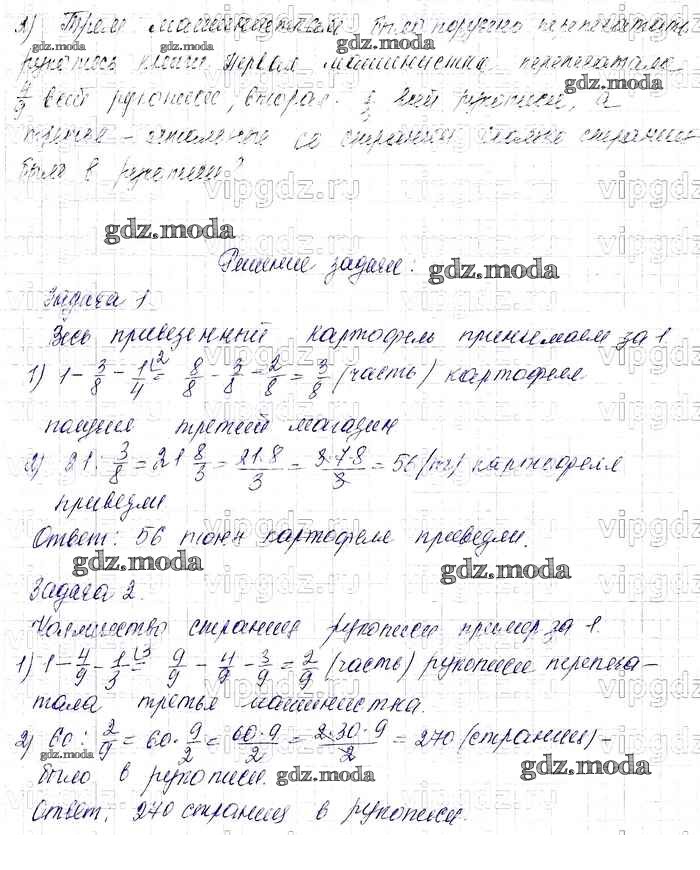 2) Трем машинисткам было поручено перепечатать
рукопись книги. Первая машинистка перепечатала
4/9 всей рукописи, вторая 1/3 всей рукописи, а
третья - остальные 60 страниц. Сколько страниц
было в рукописи?
Решение задач:
Задача 1.
Весь привезенный картофель принимаем за 1
1) 1 - 3/8 - 1/4 = 8/8 - 3/8 - 2/8 = 3/8 (часть) картофеля
третий магазин
2) 21 : 3/8 = 21 8/3 = 21·8/3 = 3·7·8/3 = 56 (т) картофеля
привезли
Ответ: 56 тонн картофеля привезли.
Задача 2.
Количество страниц рукописи пример за 1.
1) 1 - 4/9 - 1/3 = 9/9 - 4/9 - 3/9 = 2/9 (часть) рукописи перепеча-
тала третья машинистка.
2) 60 : 2/9 = 60 · 9/2 = 60·9/2 = 2·30·9/2 = 270 (страниц) -
было в рукописи.
Ответ: 270 страниц в рукописи.
gdz.moda
vipgdz.ru